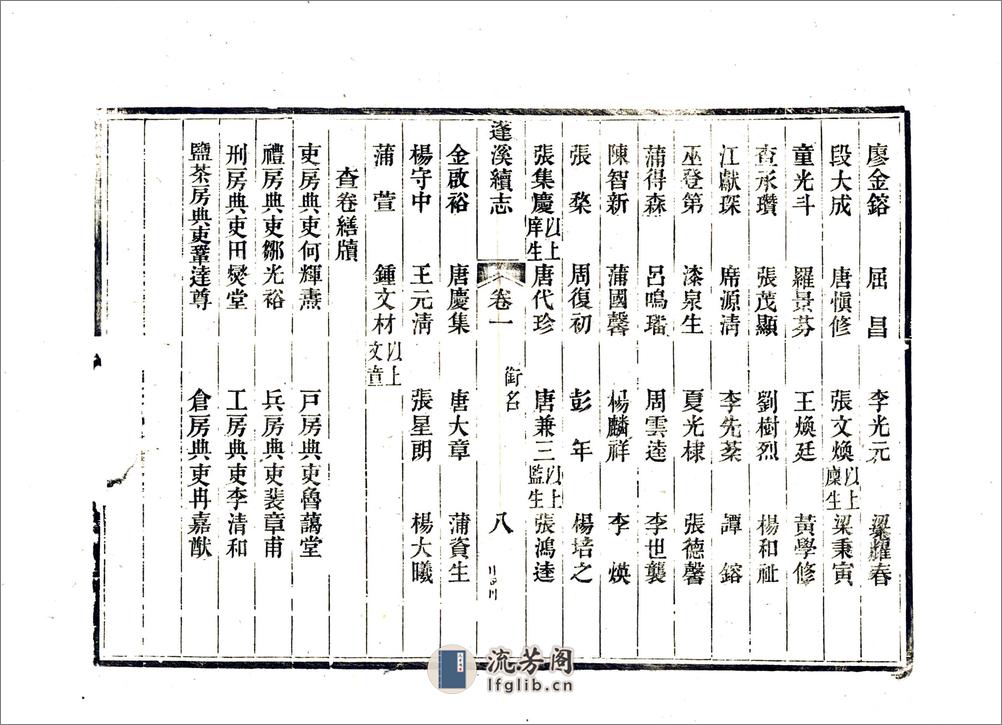 廖金鎔 屈昌 李光元 梁耀春
段大成 唐愼修 張文煥以上廩生 梁秉寅
童光斗 羅景芬 王煥廷 黃學修
查承瓚 張茂顯 劉樹烈 楊和祉
江獻琛 席源淸 李先棻 譚鎔
巫登第 漆泉生 夏光棣 張德馨
蒲得森 呂鳴璠 周雲逵 李世襲
陳智新 蒲國馨 楊麟祥 李煐
張棨 周復初 彭年 楊培之
張集慶以上庠生 唐代珍 唐兼三以上監生 張鴻逵
蓬溪續志 卷一 銜名 八
金啟裕 唐慶集 唐大章 蒲資生
楊守中 王元淸 張星朗 楊大曦
蒲萱 鍾文材以上文童
查卷繕牘
吏房典吏何輝燾 戸房典吏魯藹堂
禮房典吏鄒光裕 兵房典吏裴章甫
刑房典吏田爕堂 工房典吏李清和
鹽茶房典吏鞏達尊 倉房典吏冉嘉猷
流芳阁
lfglib.cn